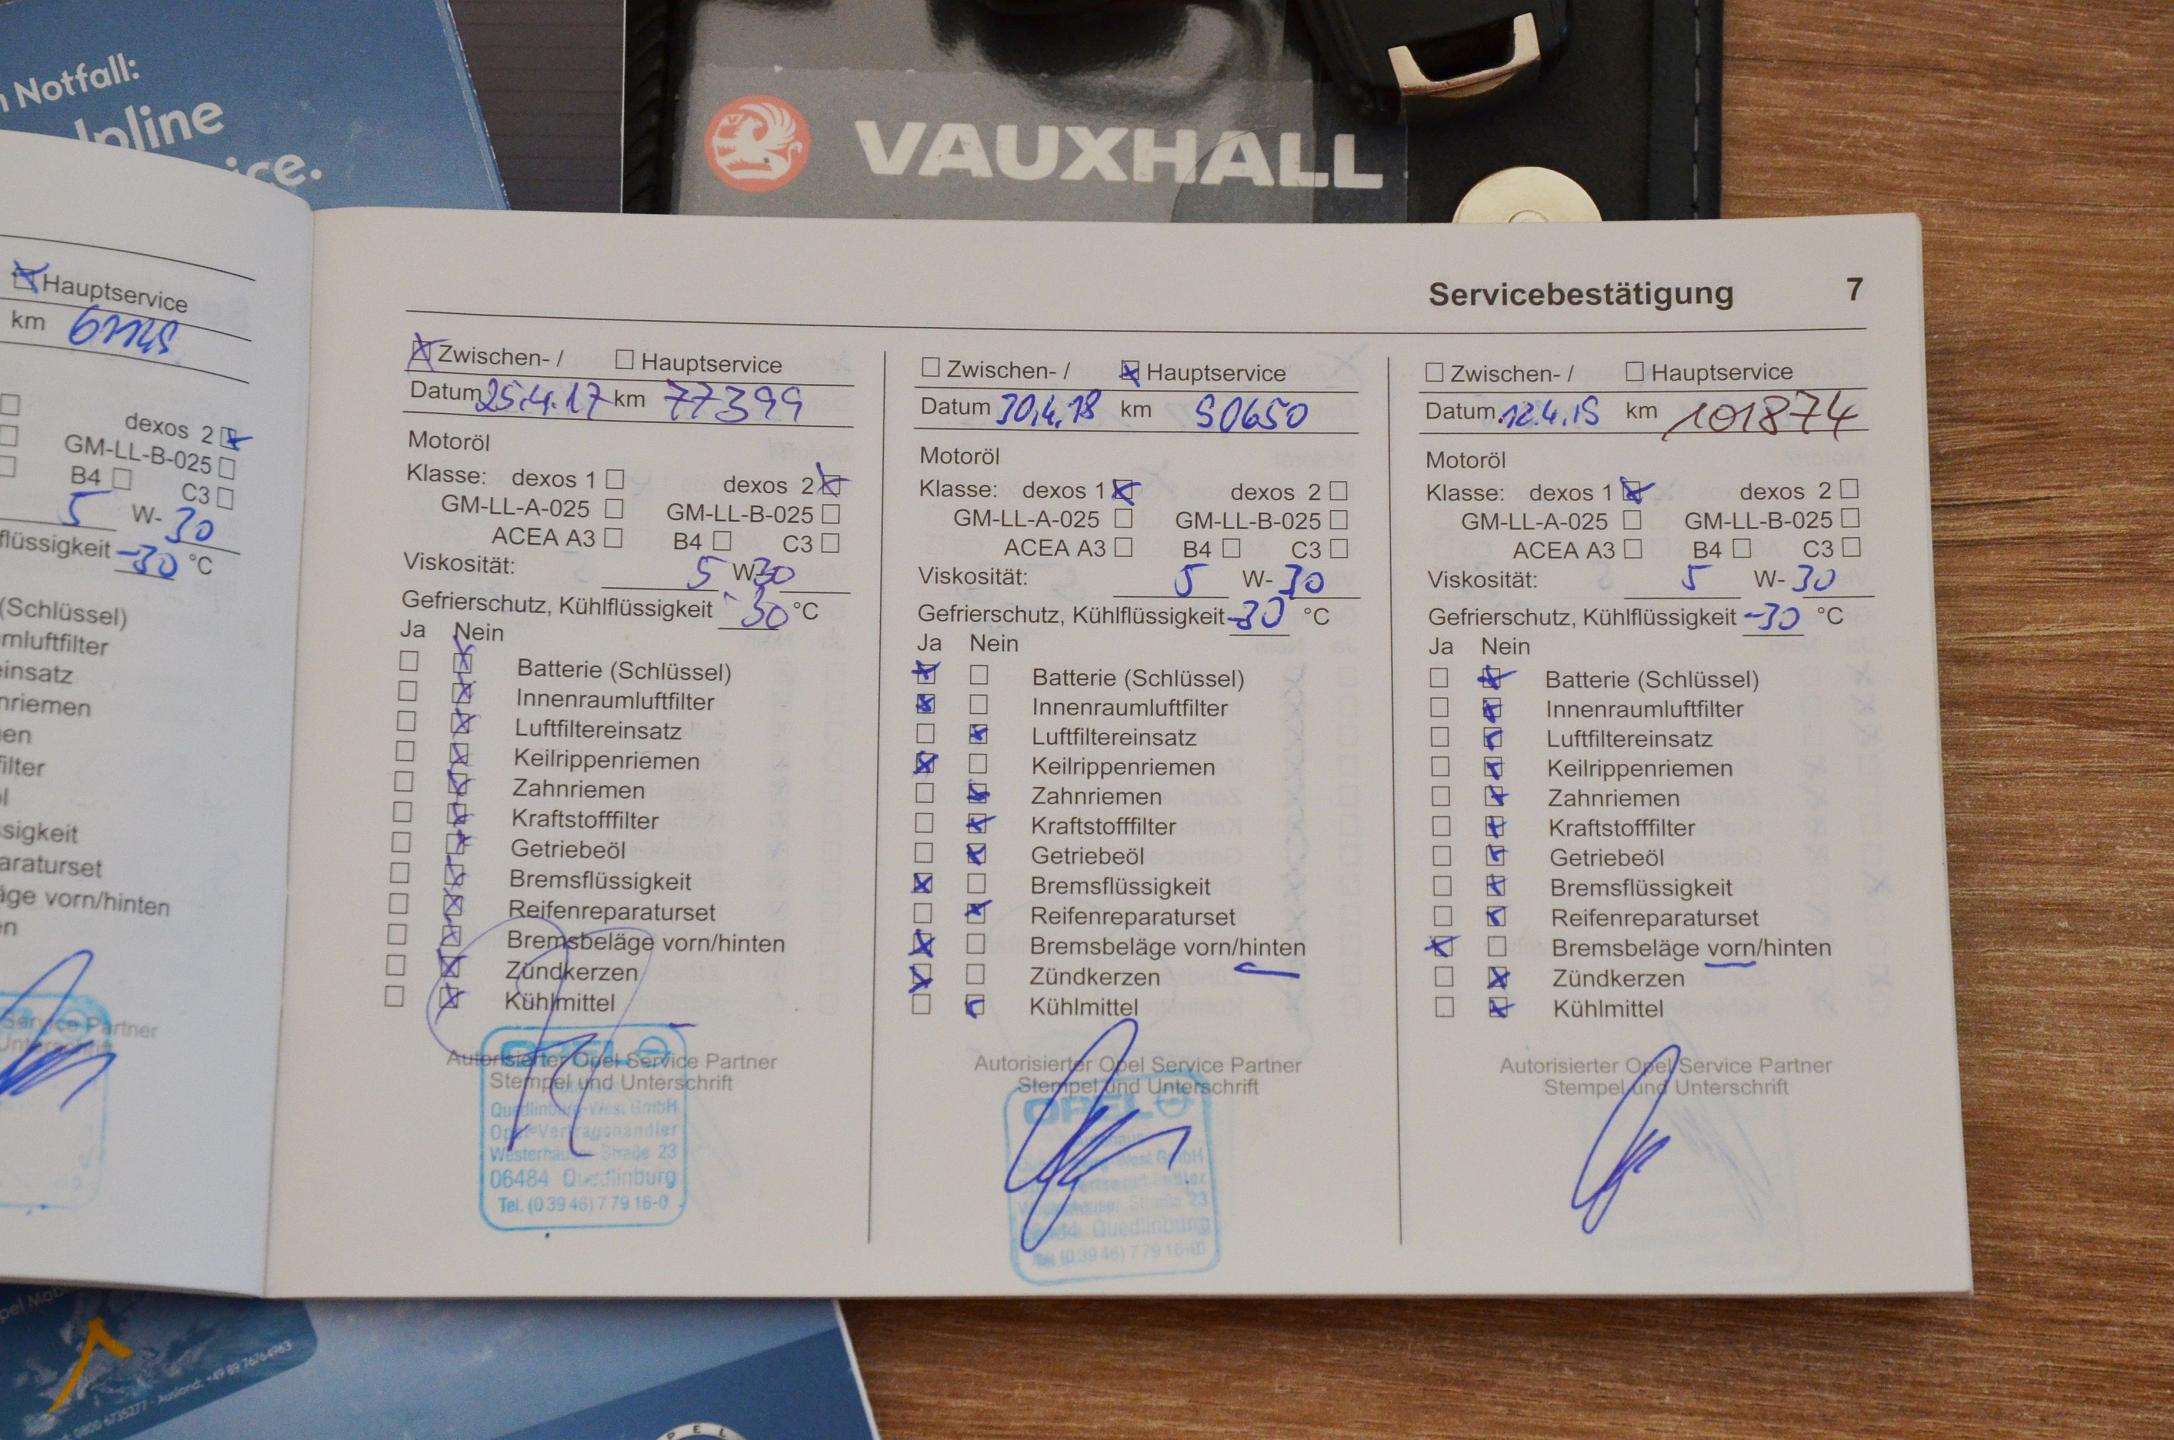 n Notfall:
lpline
ice.
VAUXHALL
Hauptservice
km
dexos 2
GM-LL-B-025
B4 C3
5 W-30
flüssigkeit -30 °C
(Schlüssel)
mluftfilter
einsatz
nriemen
en
filter
l
ssigkeit
araturset
äge vorn/hinten
n
Service Partner
Unterschrift
Servicebestätigung 7
Zwischen- / Hauptservice
Datum 25.4.17 km 77399
Motoröl
Klasse: dexos 1 dexos 2
GM-LL-A-025 GM-LL-B-025
ACEA A3 B4 C3
Viskosität: 5 W30
Gefrierschutz, Kühlflüssigkeit -30 °C
Ja Nein
Batterie (Schlüssel)
Innenraumluftfilter
Luftfiltereinsatz
Keilrippenriemen
Zahnriemen
Kraftstofffilter
Getriebeöl
Bremsflüssigkeit
Reifenreparaturset
Bremsbeläge vorn/hinten
Zündkerzen
Kühlmittel
Autorisierter Opel Service Partner
Stempel und Unterschrift
OPEL
Quedlinburg-West GmbH
Opel-Vertragshändler
Westerhäuser Straße 23
06484 Quedlinburg
Tel. (0 39 46) 7 79 16-0
Zwischen- / Hauptservice
Datum 30.4.18 km 90650
Motoröl
Klasse: dexos 1 dexos 2
GM-LL-A-025 GM-LL-B-025
ACEA A3 B4 C3
Viskosität: 5 W-30
Gefrierschutz, Kühlflüssigkeit -30 °C
Ja Nein
Batterie (Schlüssel)
Innenraumluftfilter
Luftfiltereinsatz
Keilrippenriemen
Zahnriemen
Kraftstofffilter
Getriebeöl
Bremsflüssigkeit
Reifenreparaturset
Bremsbeläge vorn/hinten
Zündkerzen
Kühlmittel
Autorisierter Opel Service Partner
Stempel und Unterschrift
OPEL
Autohaus
Quedlinburg-West GmbH
Opel-Vertragshändler
Westerhäuser Straße 23
06484 Quedlinburg
Tel. (0 39 46) 7 79 16-0
Zwischen- / Hauptservice
Datum 12.4.19 km 101874
Motoröl
Klasse: dexos 1 dexos 2
GM-LL-A-025 GM-LL-B-025
ACEA A3 B4 C3
Viskosität: 5 W-30
Gefrierschutz, Kühlflüssigkeit -30 °C
Ja Nein
Batterie (Schlüssel)
Innenraumluftfilter
Luftfiltereinsatz
Keilrippenriemen
Zahnriemen
Kraftstofffilter
Getriebeöl
Bremsflüssigkeit
Reifenreparaturset
Bremsbeläge vorn/hinten
Zündkerzen
Kühlmittel
Autorisierter Opel Service Partner
Stempel und Unterschrift
pel Mob
0800 6735277 · Ausland: +49 89 76764963
PEL